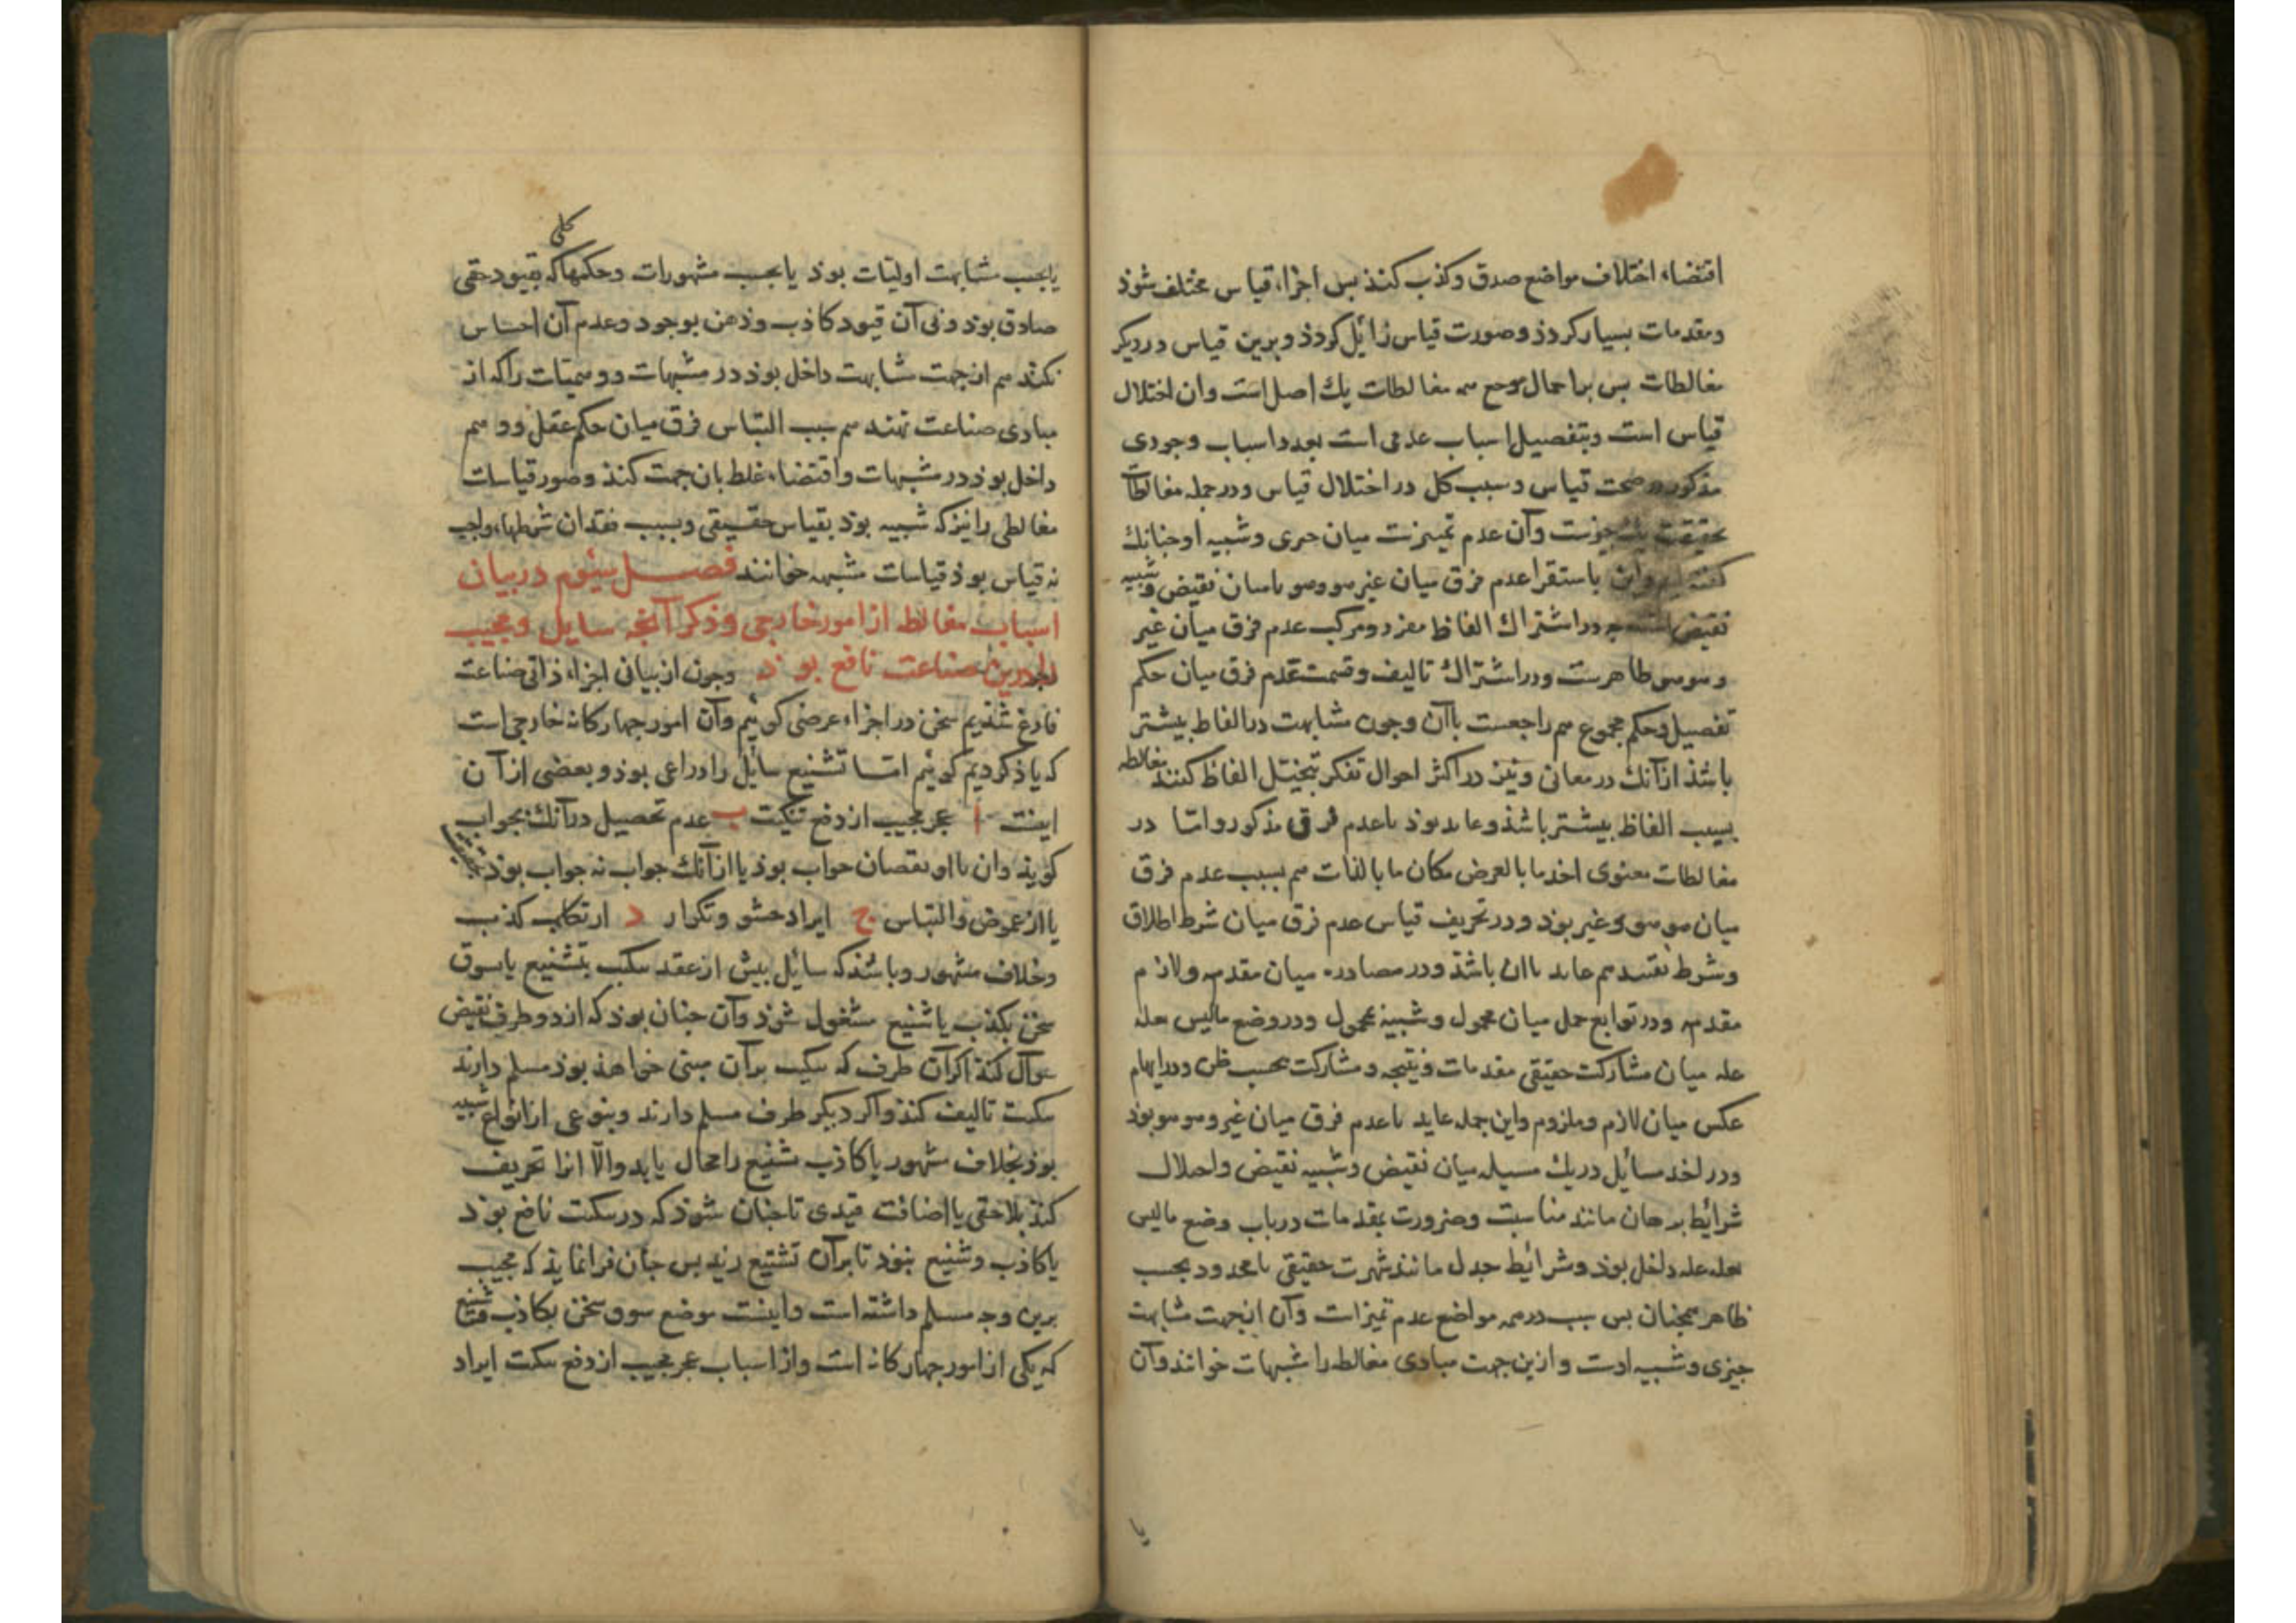 اقتضاء اختلاف مواضع صدق وکذب کنذ بس اجزاء قیاس مختلف شوذ
ومقدمات بسیار کردذ وصورت قیاس زائل کردذ وبرین قیاس در دیکر
مغالطات بس بر اجمال مرجع همه مغالطات یك اصل است وان اختلال
قیاس است وبتفصیل اسباب عدمی است بعدد اسباب وجودی
مذکور در صحت قیاس وسبب کل در اختلال قیاس ودر جمله مغالطات
بحقیقت یك جیزست وآن عدم تمیزست میان جیزی وشبیه او جنانك
کفته ایم واین باستقرا عدم فرق میان غیر هو وهو یا میان نقیض وشبیه
نقیض در اشتراك الفاظ مفرد ومرکب عدم فرق میان غیر
وهوهو ظاهرست ودر اشتراك تالیف وقسمت عدم فرق میان حکم
تفصیل وحکم مجموع هم راجعست باآن وجون مشابهت در الفاظ بیشتر
باشذ ازآنك در معانی ونیز در اکثر احوال تفکر بتخیل الفاظ کنند مغالطه
بسبب الفاظ بیشتر باشذ وعاید بوذ باعدم فرق مذکور واما در
مغالطات معنوی اخذ ما بالعرض مکان ما بالذات هم بسبب عدم فرق
میان هوهو وغیر بوذ ودر تحریف قیاس عدم فرق میان شرط اطلاق
وشرط تقیید هم عاید باان باشذ ودر مصادره میان مقدمه ولازم
مقدمه ودر توابع حمل میان محمول وشبیه بمحمول ودر وضع مالیس بعله
عله میان مشارکت حقیقی مقدمات ونتیجه ومشارکت بحسب ظن ودر ایهام
عکس میان لازم وملزوم واین جمله عاید باعدم فرق میان غیر وهوهو بوذ
ودر اخذ مسائل در یك مسیله میان نقیض وشبیه نقیض واخلال
شرائط برهان مانند مناسبت وضرورت بمقدمات در باب وضع مالیس
بعله عله داخل بوذ وشرائط جدل مانند شهرت حقیقی یا محدود بحسب
ظاهر همجنان بس سبب در همه مواضع عدم تمیز است وآن از جهت مشابهت
جیزی وشبیه اوست وازین جهت مبادی مغالطه را مشبهات خوانند وآن
یا
یا بحسب مشابهت اولیات بوذ یا بحسب مشهورات وحکمها کلی که بقیود حقی
صادق بوذ وبی آن قیود کاذب وذهن بوجود وعدم آن احساس
نکند هم از جهت مشابهت داخل بوذ در مشبهات ووهمیات را که از
مبادی صناعت نهند هم بسبب التباس فرق میان حکم عقل ووهم
داخل بوذ در مشبهات واقتضاء غلط بان جهت کنذ وصور قیاسات
مغالطی را نیز که شبیه بوذ بقیاس حقیقی وبسبب فقدان شرطهاء واجب
نه قیاس بوذ قیاسات مشبهه خوانند فصل سیوم در بیان
اسباب مغالطه از امور خارجی وذکر آنجه سایل ومجیب
را درین صناعت نافع بوذ وجون از بیان اجزاء ذاتی صناعت
فارغ شذیم سخن در اجزاء عرضی کوئیم وآن امور جهارکانه خارجی است
که یاذ کردیم کوئیم اما تشنیع سایل را دواعی بوذ وبعضی از آن
اینست ا عجز مجیب از دفع تبکیت ب عدم تحصیل درآنك بجواب
کویذ وان یا از نقصان جواب بوذ یا ازآنك جواب نه جواب بوذ
یا از غموض والتباس ج ایراد حشو وتکرار د ارتکاب کذب
وخلاف مشهور وباشذ که سائل بیش از عقد تبکیت بتشنیع یا سوق
سخن بکذب یا شنیع مشغول شوذ وآن جنان بوذ که از دو طرف نقیض
سوال کند اکر آن طرف که تبکیت برآن مبنی خواهذ بوذ مسلم دارند
تبکیت تالیف کنذ واکر دیکر طرف مسلم دارند وبنوعی از انواع شبیه
بوذ بخلاف مشهور یا کاذب تشنیع را مجال یابد والا انرا تحریف
کنذ بلاحقی یا اضافت قیدی تا جنان شوذ که در تبکیت نافع بوذ
یا کاذب وشنیع بنوذ تا برآن تشنیع زند بس جنان فرا نماید که مجیب
برین وجه مسلم داشته است واینست موضع سوق سخن بکاذب وشنیع
که یکی از امور جهارکانه است واز اسباب عجز مجیب از دفع تبکیت ایراد